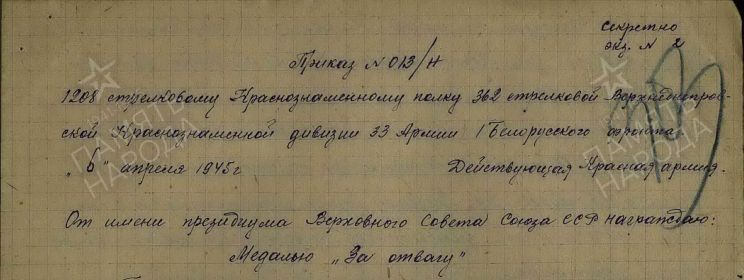 Секретно
экз. N 2
Приказ N 013/н
1208 стрелковому Краснознаменному полку 362 стрелковой Верхнднепров-
ской Краснознаменной дивизии 33 Армии 1 Белорусского фронта.
"6" апреля 1945г Действующая Красная армия.
От имени президиума Верховного Совета Союза ССР награждаю:
Медалью "За отвагу"
ПАМЯТЬ НАРОДА
ПАМЯТЬ НАРОДА
ПАМЯТЬ НАРОДА